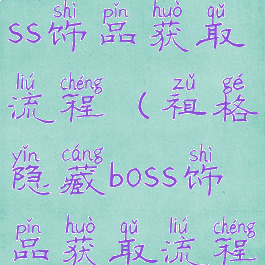 shì pǐn huò qǔ
ss饰品获取
liú chéng zǔ gé
流程(祖格
yǐn cáng shì
隐藏boss饰
pǐn huò qǔ liú chéng
品获取流程